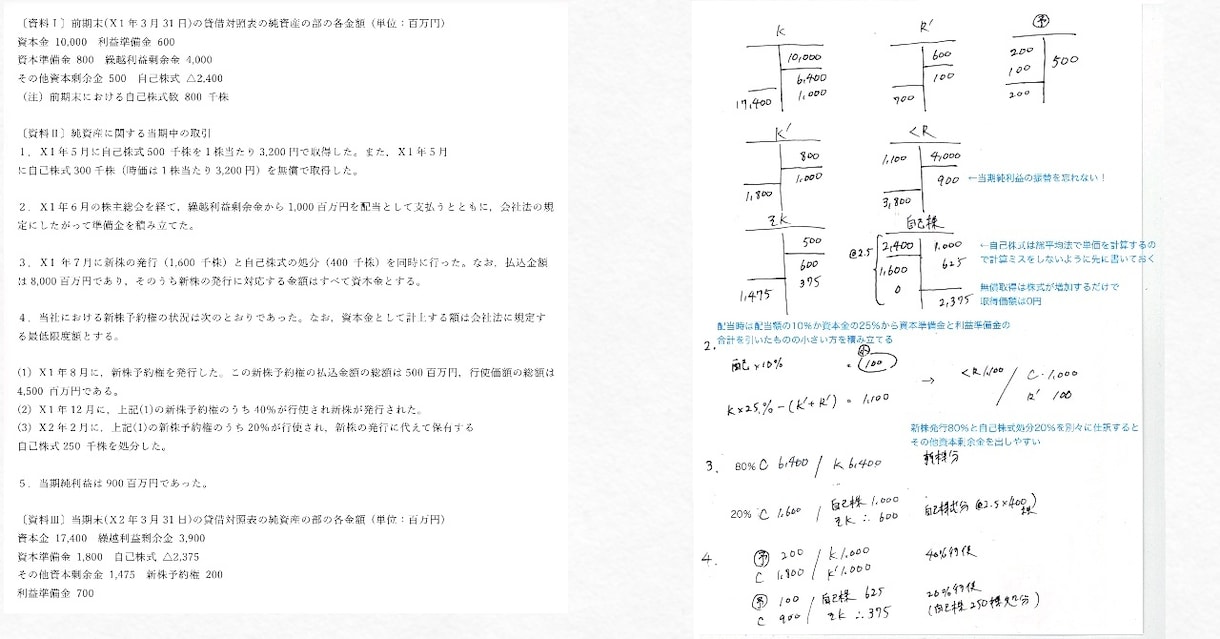 〔資料Ⅰ〕前期末(X1年3月31日)の貸借対照表の純資産の部の各金額（単位：百万円）
資本金 10,000　利益準備金 600
資本準備金 800　繰越利益剰余金 4,000
その他資本剰余金 500　自己株式 △2,400
（注）前期末における自己株式数 800 千株
〔資料Ⅱ〕純資産に関する当期中の取引
1．X1年5月に自己株式500 千株を1株当たり3,200円で取得した。また，X1年5月
に自己株式300千株（時価は1株当たり3,200円）を無償で取得した。
2．X1年6月の株主総会を経て，繰越利益剰余金から1,000百万円を配当として支払うとともに，会社法の規
定にしたがって準備金を積み立てた。
3．X1年7月に新株の発行（1,600 千株）と自己株式の処分（400 千株）を同時に行った。なお，払込金額
は8,000百万円であり，そのうち新株の発行に対応する金額はすべて資本金とする。
4．当社における新株予約権の状況は次のとおりであった。なお，資本金として計上する額は会社法に規定す
る最低限度額とする。
(1) X1年8月に，新株予約権を発行した。この新株予約権の払込金額の総額は500百万円，行使価額の総額は
4,500 百万円である。
(2) X1年12月に，上記(1)の新株予約権のうち40%が行使され新株が発行された。
(3) X2年2月に，上記(1)の新株予約権のうち20%が行使され，新株の発行に代えて保有する
自己株式250 千株を処分した。
5．当期純利益は900百万円であった。
〔資料Ⅲ〕当期末(X2年3月31日)の貸借対照表の純資産の部の各金額（単位：百万円）
資本金 17,400　繰越利益剰余金 3,900
資本準備金 1,800　自己株式 △2,375
その他資本剰余金 1,475　新株予約権 200
利益準備金 700
K
10,000
6,400
1,000
17,400
R'
600
100
700
予
200
100
200
500
K'
800
1,000
1,800
<R
1,100
4,000
900
3,800
←当期純利益の振替を忘れない！
そK
500
600
375
1,475
自己株
@2.5
2,400
1,600
0
1,000
625
2,375
←自己株式は総平均法で単価を計算するの
で計算ミスをしないように先に書いておく
無償取得は株式が増加するだけで
取得価額は0円
配当時は配当額の10%か資本金の25%から資本準備金と利益準備金の
合計を引いたものの小さい方を積み立てる
2.
配当×10% = 100 小
K×25% - (K'+R') = 1,100
→ <R 1,100 / C 1,000
R' 100
新株発行80%と自己株式処分20%を別々に仕訳すると
その他資本剰余金を出しやすい
3. 80% C 6,400 / K 6,400 新株分
20% C 1,600 / 自己株 1,000 自己株式分 @2.5×400千株
そK ∴ 600
4. 予 200 / K 1,000 40%行使
C 1,800 / K' 1,000
予 100 / 自己株 625 20%行使
C 900 / そK ∴ 375 (自己株250株処分)